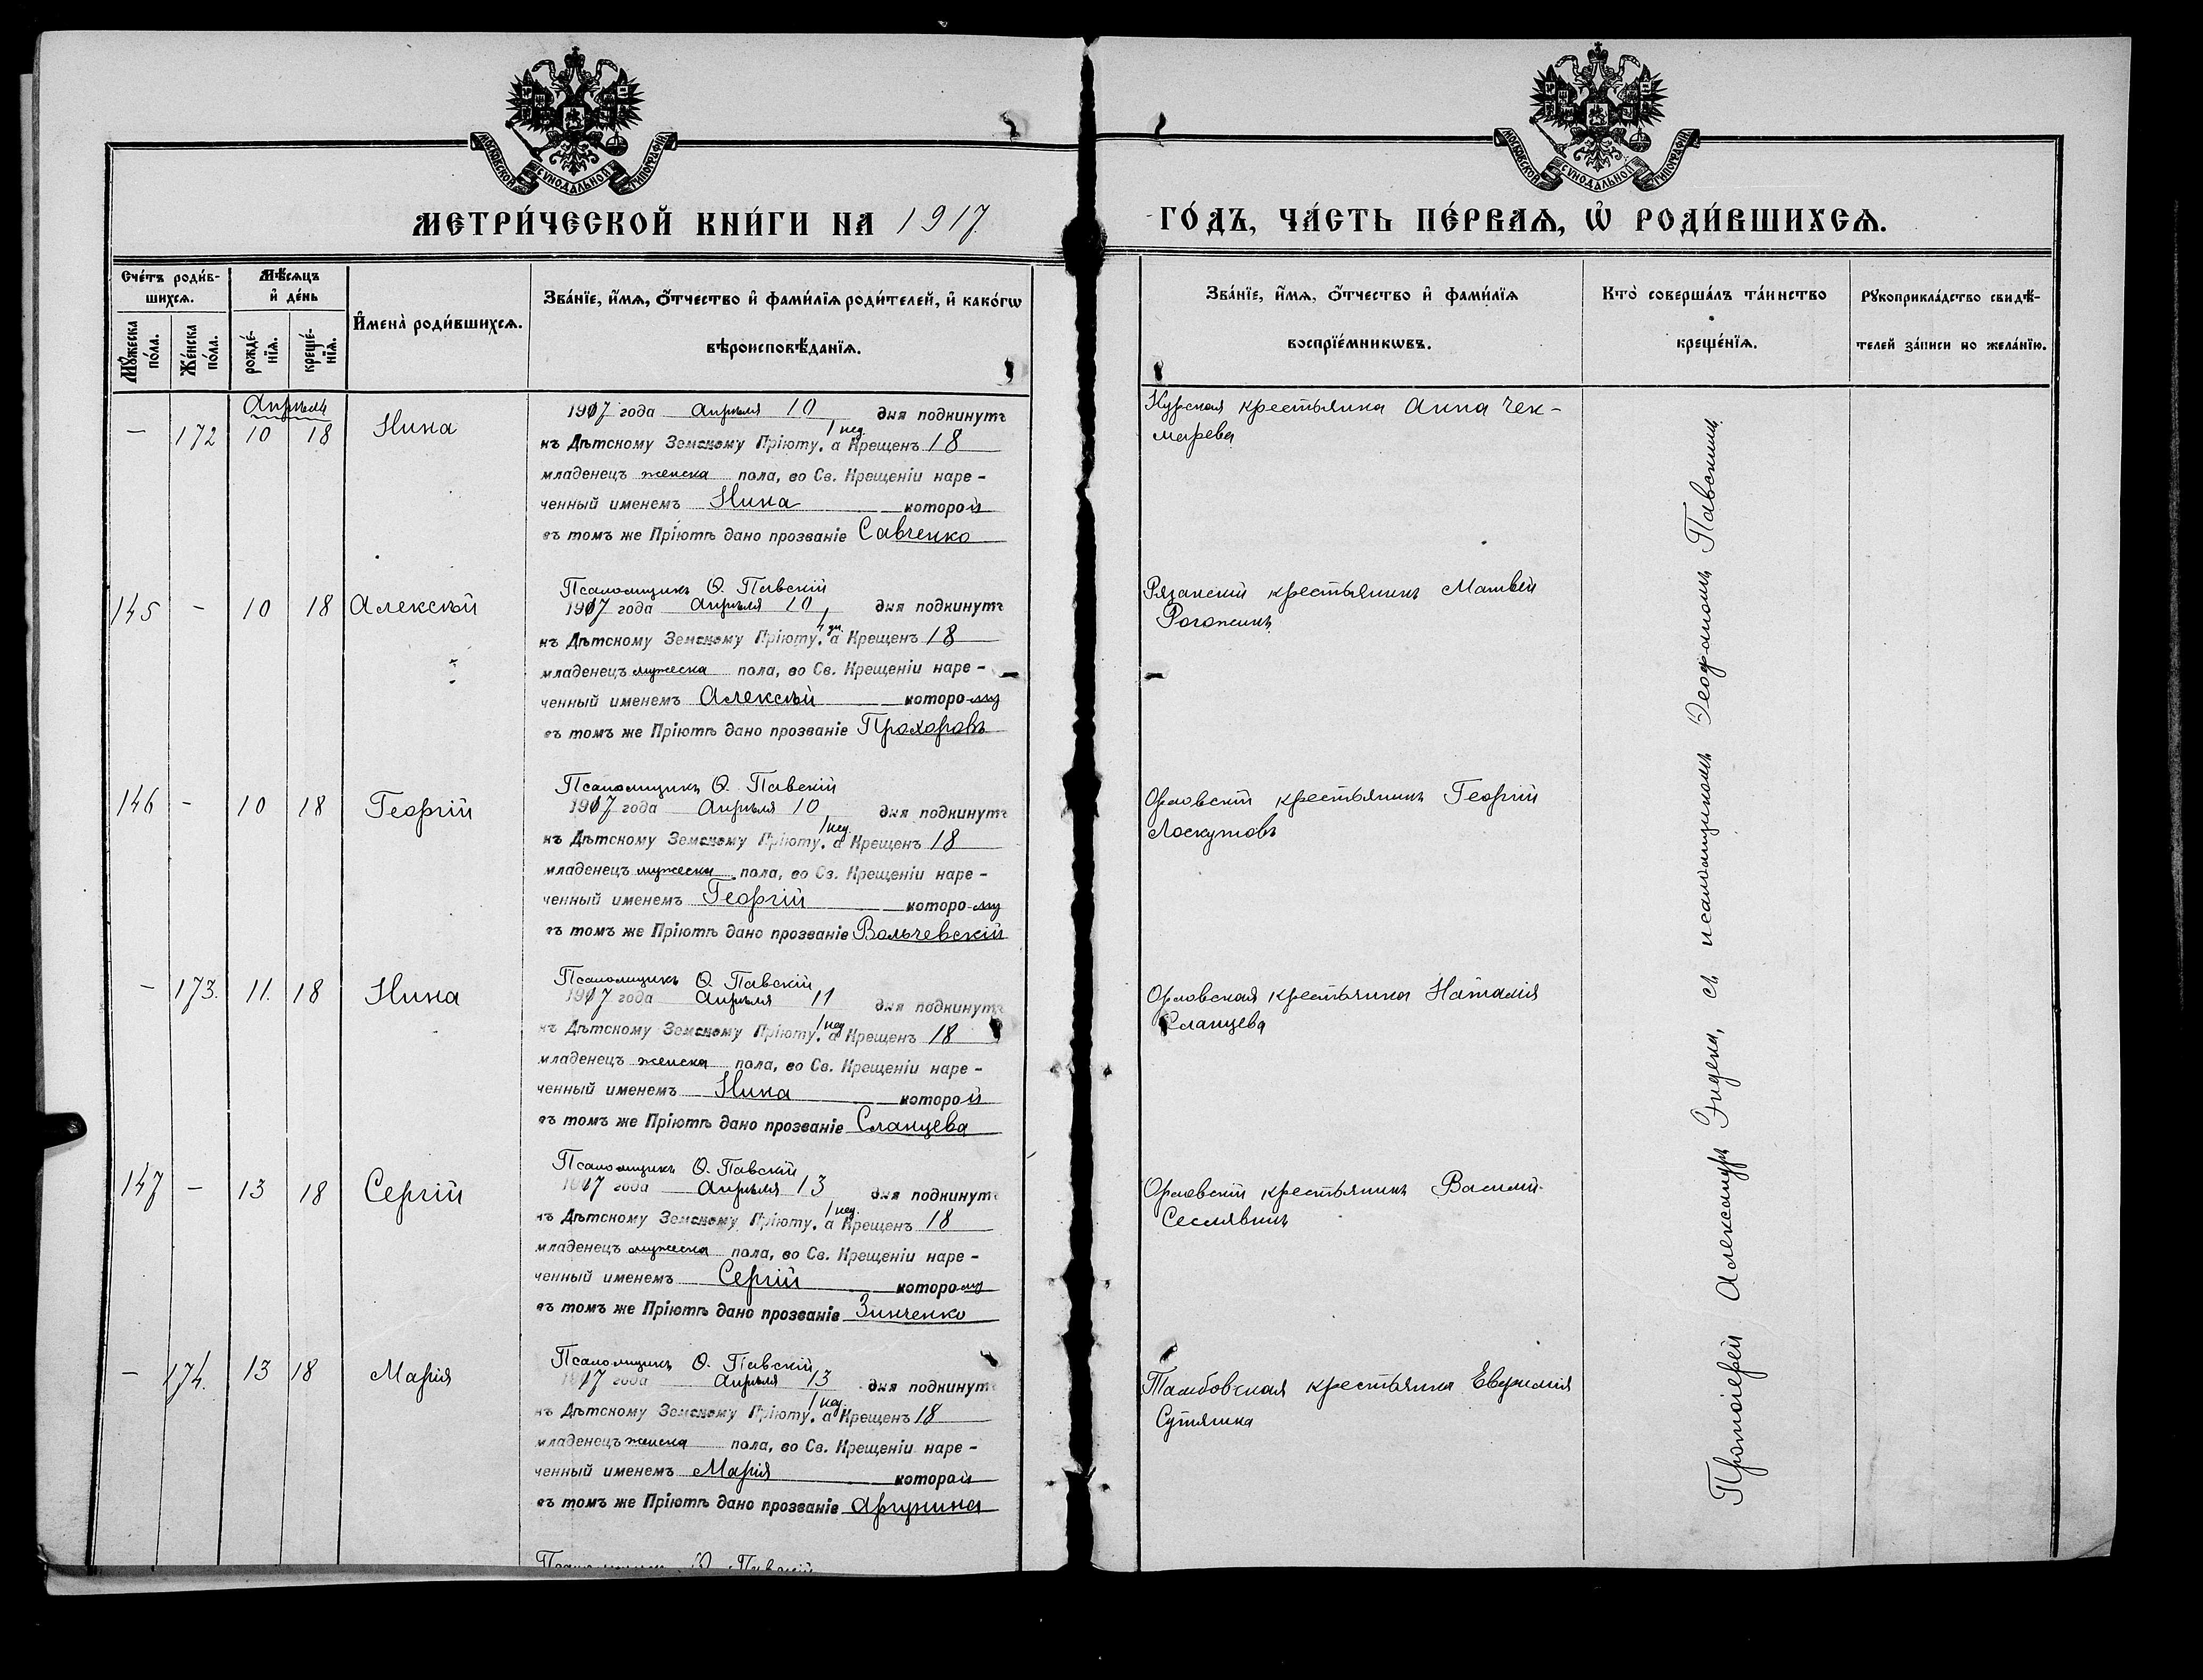 МОСКОВСКОЙ СУНОДАЛЬНОЙ ТИПОГРАФІИ
МОСКОВСКОЙ СУНОДАЛЬНОЙ ТИПОГРАФІИ
МЕТРИ́ЧЕСКОЙ КНИ́ГИ НА 1917
ГО́ДЪ, ЧА́СТЬ ПЕ́РВАѦ, Ѡ҆ РОДИ́ВШИХСѦ.
Сче́тъ роди́в-
шихсѧ.
Мꙋ́жеска
по́ла.
Же́нска
по́ла.
Мѣ́сѧцъ
и҆ де́нь
рожде́-
нїѧ.
креще́-
нїѧ.
И҆мена̀ роди́вшихсѧ.
Зва́нїе, и҆́мѧ, ѻ҆́тчество и҆ фами́лїѧ роди́телей, и҆ како́гѡ
вѣроисповѣ́данїѧ.
Зва́нїе, и҆́мѧ, ѻ҆́тчество и҆ фами́лїѧ
воспрїе́мникѡвъ.
Кто̀ соверша́лъ та́инство
креще́нїѧ.
Рꙋкоприкла́дство свидѣ́-
телей за́писи по жела́нїю.
Апрѣль
— 172 10 18 Нина
1917 года Апрѣля 10 дня подкинутъ
къ Дѣтскому Земскому Пріюту, 1 нед. а Крещенъ 18
младенецъ женска пола, во Св. Крещеніи наре-
ченный именемъ Нина которой
въ томъ же Пріютѣ дано прозваніе Савченко
Курская крестьянка Анна Чек-
марева
Псаломщикъ Ѳ. Павскій
145 — 10 18 Алексѣй
1917 года Апрѣля 10 дня подкинутъ
къ Дѣтскому Земскому Пріюту, а Крещенъ 18
младенецъ мужеска пола, во Св. Крещеніи наре-
ченный именемъ Алексѣй которому
въ томъ же Пріютѣ дано прозваніе Прохоровъ
Рязанскій крестьянинъ Матвѣй
Рогожинъ
Псаломщикъ Ѳ. Павскій
146 — 10 18 Георгій
1917 года Апрѣля 10 дня подкинутъ
къ Дѣтскому Земскому Пріюту, 1 нед. а Крещенъ 18
младенецъ мужеска пола, во Св. Крещеніи наре-
ченный именемъ Георгій которому
въ томъ же Пріютѣ дано прозваніе Вольчевскій
Орловскій крестьянинъ Георгій
Лоскутовъ
Псаломщикъ Ѳ. Павскій
— 173. 11. 18 Нина
1917 года Апрѣля 11 дня подкинутъ
къ Дѣтскому Земскому Пріюту, 1 нед. а Крещенъ 18
младенецъ женска пола, во Св. Крещеніи наре-
ченный именемъ Нина которой
въ томъ же Пріютѣ дано прозваніе Сланцева
Орловская крестьянка Наталія
Сланцева
Псаломщикъ Ѳ. Павскій
147 — 13 18 Сергій
1917 года Апрѣля 13 дня подкинутъ
къ Дѣтскому Земскому Пріюту, 1 нед. а Крещенъ 18
младенецъ мужеска пола, во Св. Крещеніи наре-
ченный именемъ Сергій которому
въ томъ же Пріютѣ дано прозваніе Зинченко
Орловскій крестьянинъ Василій
Сеславинъ
Псаломщикъ Ѳ. Павскій
— 174. 13 18 Марія
1917 года Апрѣля 13 дня подкинутъ
къ Дѣтскому Земскому Пріюту, 1 нед. а Крещенъ 18
младенецъ женска пола, во Св. Крещеніи наре-
ченный именемъ Марія которой
въ томъ же Пріютѣ дано прозваніе Аргунина
Тамбовская крестьянка Евфимія
Сутягина
Псаломщикъ Ѳ. Павскій
Протоіерей Александръ Эндека, съ псаломщикомъ Ѳеофаномъ Павскимъ